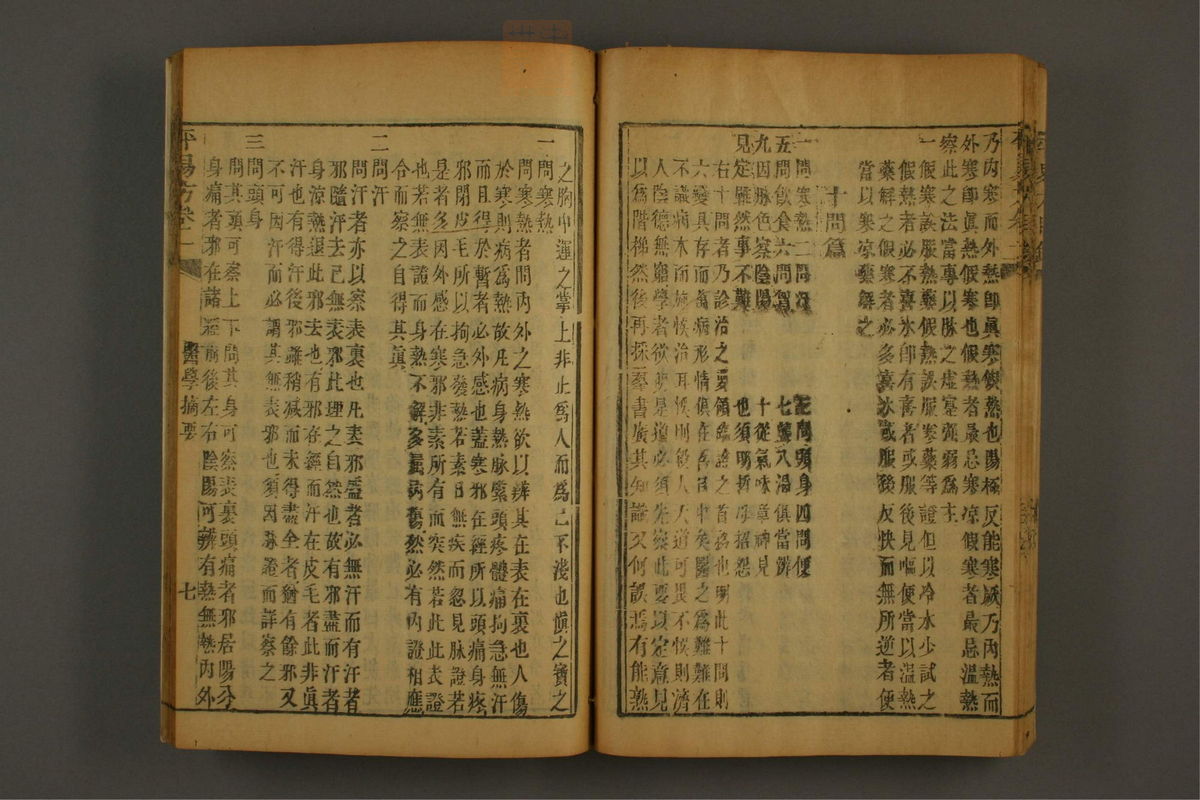 乃內寒而外熱卽眞寒假熱也陽極反能寒厥乃內熱而
外寒卽眞熱假寒也假熱者最忌寒凉假寒者最忌溫熱
察此之法當專以脉之虛實強弱爲主
一假寒誤服熱藥假熱誤服寒藥等證但以冷水少試之
假熱者必不喜水卽有喜者或服後見嘔便當以溫熱
藥解之假寒者必多喜水或服後反快而無所逆者便
當以寒凉藥解之
十問篇
一問寒熱二問汗 三問頭身四問便
五問飲食六問胸 七聾八渴俱當辨
九因脉色察陰陽 十從氣味章神見
見定雖然事不難 也須明哲毋招怨
右十問者乃診治之要領臨證之首務也明此十問則
六變具存而萬病形情俱在吾目中矣醫之爲難難在
不識病本而施悞治耳悞則殺人天道可畏不悞則濟
人陰德無窮學者欲明是道必須先察此要以定意見
以爲階梯然後再採羣書廣其知識又何誤焉有能熟
之胸中運之掌上非止爲人而爲己不淺也愼之寶之
一問寒熱
問寒熱者問內外之寒熱欲以辨其在表在裏也人傷
於寒則病爲熱故凡病身熱脉緊頭疼體痛拘急無汗
而且得於暫者必外感也蓋寒邪在經所以頭痛身疼
邪閉皮毛所以拘急發熱若素日無疾而忽見脉證若
是者多因外感在寒邪非素所有而突然若此此表證
也若無表證而身熱不解多屬內傷然必有內證相應
合而察之自得其眞
二問汗
問汗者亦以察表裏也凡表邪盛者必無汗而有汗者
邪隨汗去已無表邪此理之自然也故有邪盡而汗者
身凉熱退此邪去也有邪存經而汗在皮毛者此非眞
汗也有得汗後邪雖稍减而未得盡全者猶有餘邪又
不可因汗而必謂其無表邪也須因脉證而詳察之
三問頭身
問其頭可察上下問其身可察表裏頭痛者邪居陽分
身痛者邪在諸經前後左右陰陽可辨有熱無熱內外
卷一
醫學摘要
七